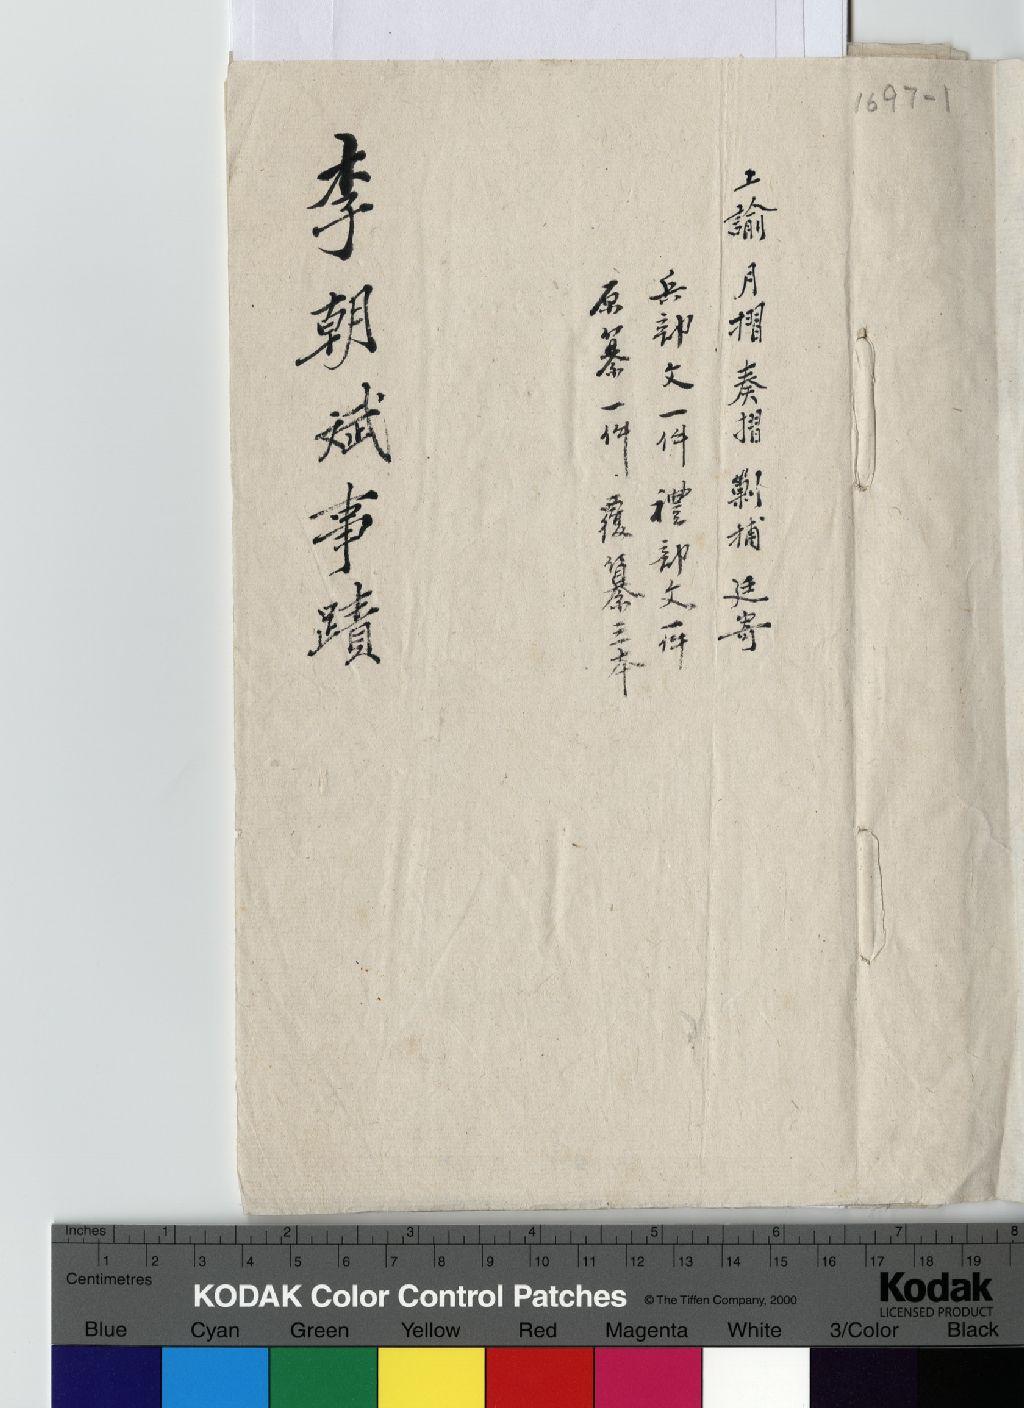 1697-1
上諭 月摺 奏摺 剿捕 廷寄
兵部文一件 禮部文一件
原纂一件 覆纂三本
李朝斌事蹟
Inches 1 2 3 4 5 6 7 8
1 2 3 4 5 6 7 8 9 10 11 12 13 14 15 16 17 18 19
Centimetres
KODAK Color Control Patches © The Tiffen Company, 2000 Kodak
LICENSED PRODUCT
Blue Cyan Green Yellow Red Magenta White 3/Color Black